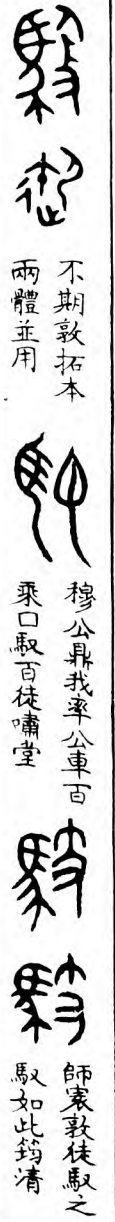 不期敦拓本
兩體並用
穆公鼎我率公車百
乘口馭百徒嘯堂
師㝨敦徒馭之
馭如此筠清